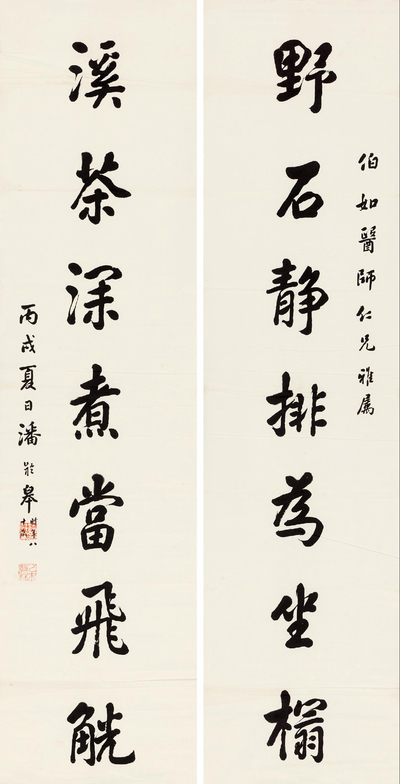 伯如醫師仁兄雅屬
野石静排為坐榻
溪茶深煮當飛觥
丙戌夏日潘齡皋